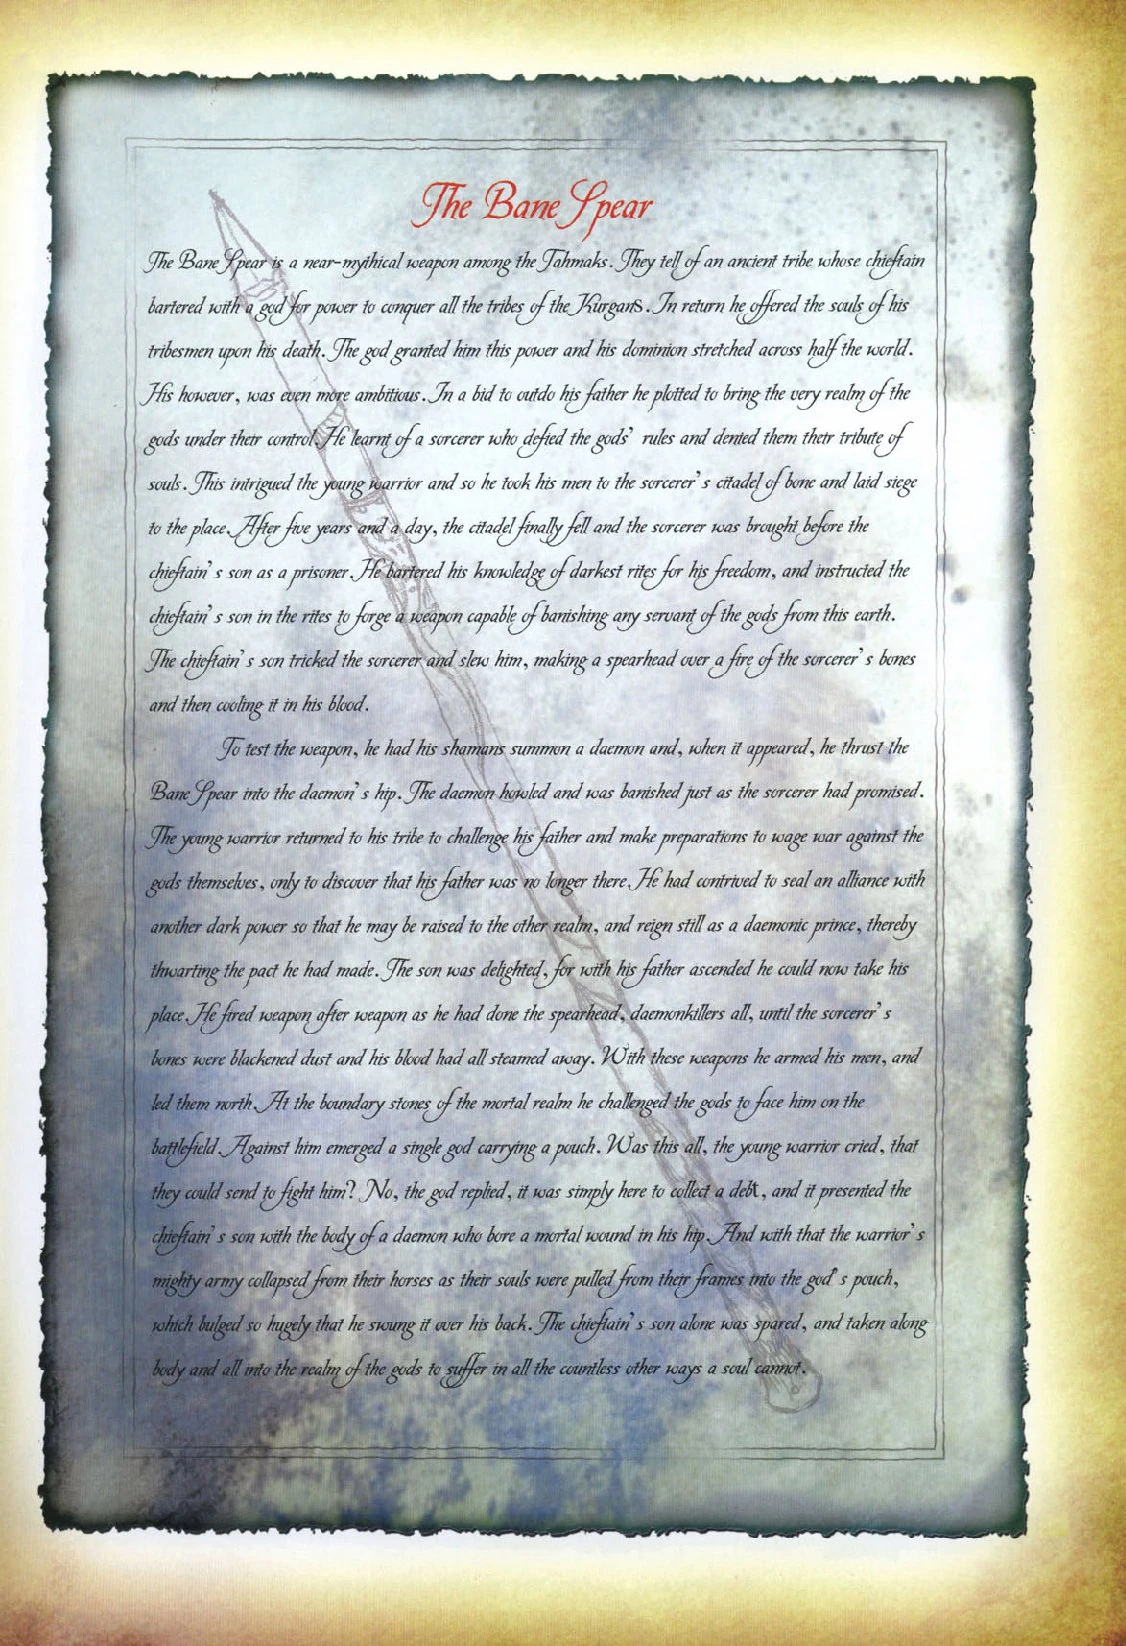 The Bane Spear
The Bane Spear is a near-mythical weapon among the Tahmaks. They tell of an ancient tribe whose chieftain
bartered with a god for power to conquer all the tribes of the Kurgans. In return he offered the souls of his
tribesmen upon his death. The god granted him this power and his dominion stretched across half the world.
His however, was even more ambitious. In a bid to outdo his father he plotted to bring the very realm of the
gods under their control. He learnt of a sorcerer who defied the gods' rules and denied them their tribute of
souls. This intrigued the young warrior and so he took his men to the sorcerer's citadel of bone and laid siege
to the place. After five years and a day, the citadel finally fell and the sorcerer was brought before the
chieftain's son as a prisoner. He bartered his knowledge of darkest rites for his freedom, and instructed the
chieftain's son in the rites to forge a weapon capable of banishing any servant of the gods from this earth.
The chieftain's son tricked the sorcerer and slew him, making a spearhead over a fire of the sorcerer's bones
and then cooling it in his blood.
To test the weapon, he had his shamans summon a daemon and, when it appeared, he thrust the
Bane Spear into the daemon's hip. The daemon howled and was banished just as the sorcerer had promised.
The young warrior returned to his tribe to challenge his father and make preparations to wage war against the
gods themselves, only to discover that his father was no longer there. He had contrived to seal an alliance with
another dark power so that he may be raised to the other realm, and reign still as a daemonic prince, thereby
thwarting the pact he had made. The son was delighted, for with his father ascended he could now take his
place. He fired weapon after weapon as he had done the spearhead, daemonkillers all, until the sorcerer's
bones were blackened dust and his blood had all steamed away. With these weapons he armed his men, and
led them north. At the boundary stones of the mortal realm he challenged the gods to face him on the
battlefield. Against him emerged a single god carrying a pouch. Was this all, the young warrior cried, that
they could send to fight him? No, the god replied, it was simply here to collect a debt, and it presented the
chieftain's son with the body of a daemon who bore a mortal wound in his hip. And with that the warrior's
mighty army collapsed from their horses as their souls were pulled from their frames into the god's pouch,
which bulged so hugely that he swung it over his back. The chieftain's son alone was spared, and taken along
body and all into the realm of the gods to suffer in all the countless other ways a soul cannot.